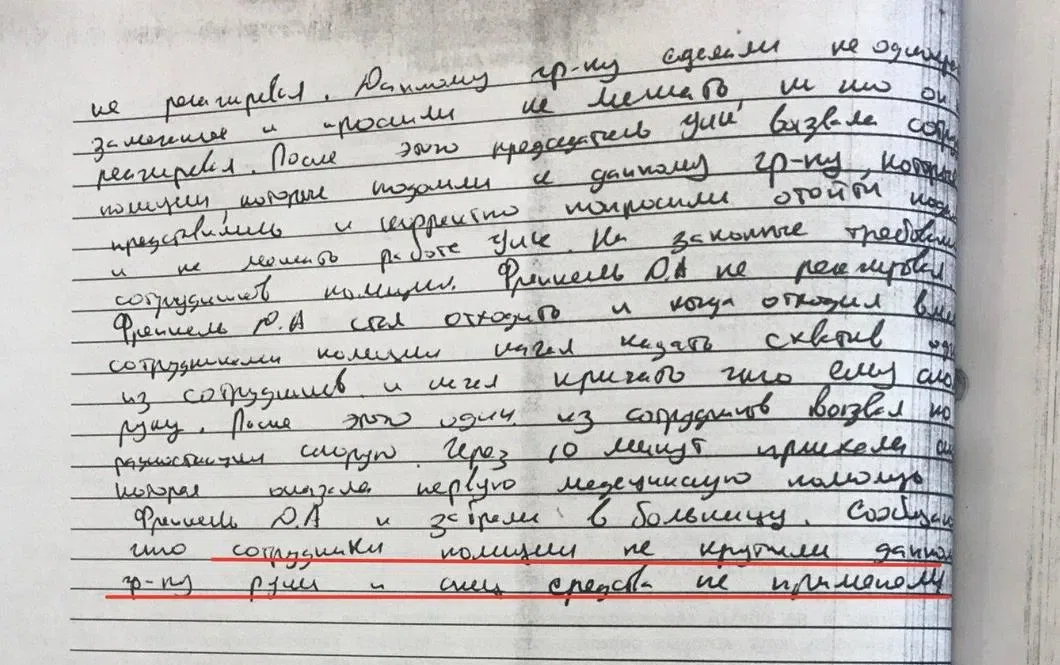 не реагировал. Данному гр-ну сделали не однокра
замечание и просили не мешать, на что он
реагировал. После этого председатель УИК вызвала сотру
полиции, которые подошли к данному гр-ну, которые
представились и корректно попросили отойти
и не мешать работе УИК. На законные требован
сотрудников полиции. Френкель Д.А не реагировал
Френкель Д.А стал отходить и когда отходил вме
сотрудниками полиции начал падать схватив од
из сотрудников и начал кричать что ему сло
руку. После этого один из сотрудников вызвал по
радиостанции скорую. Через 10 минут приехала
которая оказала первую медецинскую помощь
Френкель Д.А и забрали в больницу. Сообщаю
что сотрудники полиции не крутили данном
гр-ну руки и спец средства не применяли